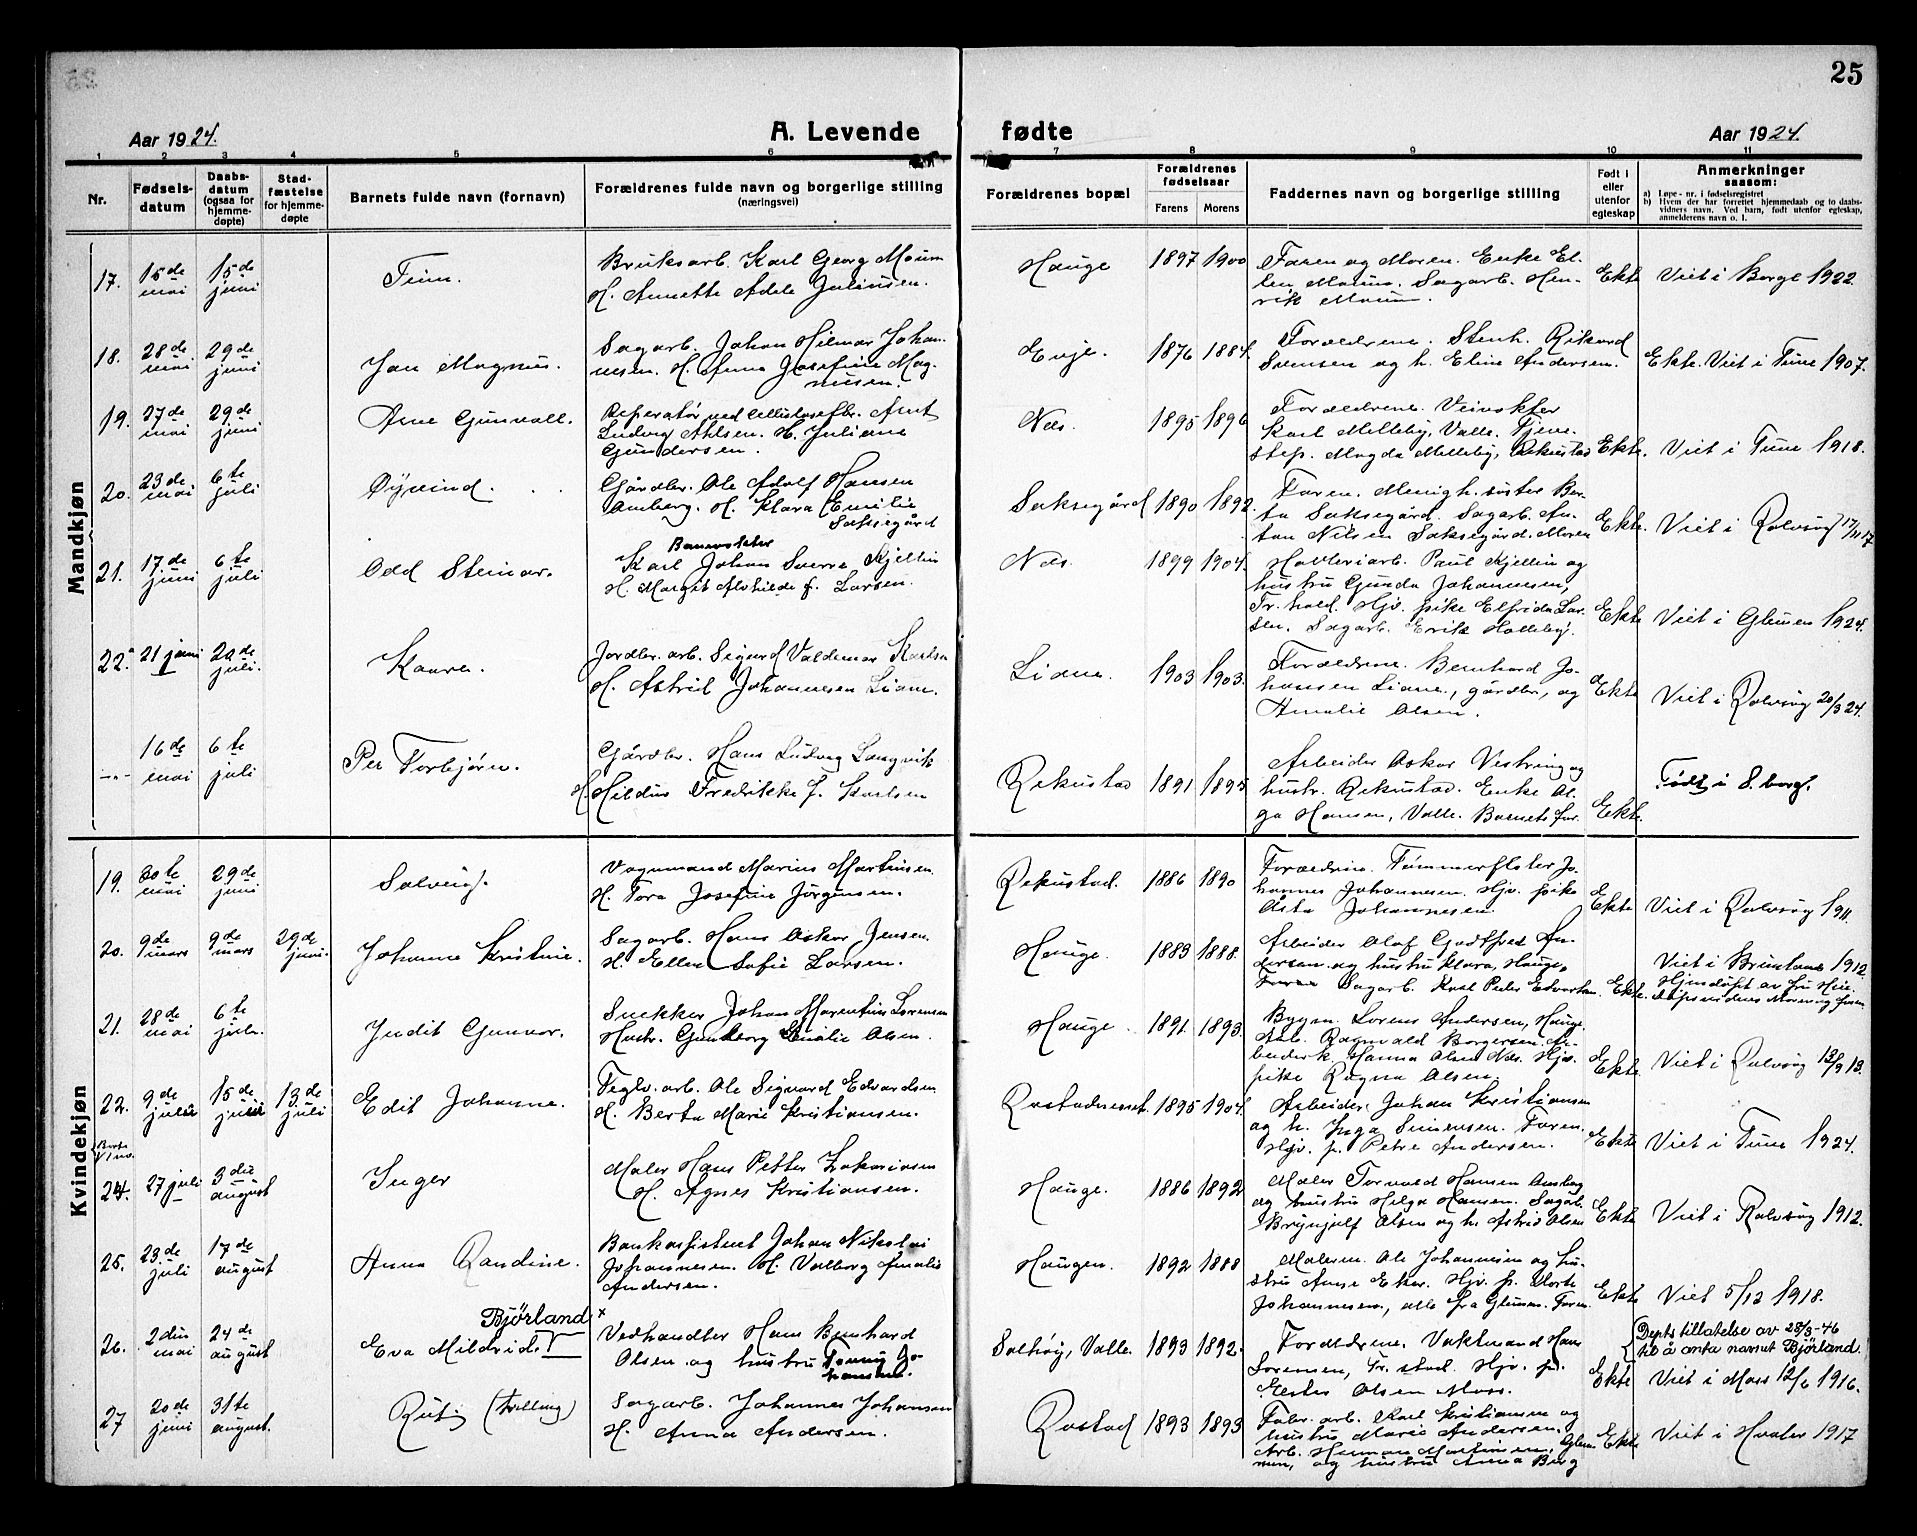 25
Aar 1924.
A. Levende
fødte
Aar 1924.
1 2 3 4 5 6 7 8 9 10 11
Nr.
Fødsels-
datum
Daabs-
datum
(ogsaa for
hjemme-
døpte)
Stad-
fæstelse
for hjemme-
døpte
Barnets fulde navn (fornavn)
Forældrenes fulde navn og borgerlige stilling
(næringsvei)
Forældrenes bopæl
Forældrenes
fødselsaar
Farens Morens
Faddernes navn og borgerlige stilling
Født i
eller
utenfor
egteskap
Anmerkninger
saasom:
a) Løpe-nr. i fødselsregistret
b) Hvem der har forrettet hjemmedaab og to daabs-
vidners navn. Ved barn, født utenfor egteskap,
anmelderens navn o. l.
Mandkjøn
17. 15de mai 15de juni
Finn.
Bruksarb. Karl Georg Moum
H. Annette Adele Juliussen.
Hauge 1897 1900
Faren og Moren. Enke El-
len Moum. Sagarb. Hen-
rik Moum.
Ekte Viet i Borge 1922.
18. 28de mai 29de juni
Jan Magnus.
Sagarb. Johan Hilmar Johan-
nesen. H. Anna Josefine Mag-
nussen.
Evje. 1876 1884.
Forældrene. Stenh. Rikard
Svensen og h. Eline Andersen.
Ekte. Viet i Tune 1907.
19. 27de mai 29de juni
Arne Gunvall.
Reperatør ved Arnt
Ludvig Ahlsen. H. Juliane
Gundersen.
Næs. 1895 1896
Forældrene. Veivokter
Karl Milleby, Valle. Tjene-
step. Magda Milleby, Rekustad
Ekte. Viet i Tune 1918.
20. 23de mai 6te juli
Øyvind.
Gårdbr. Ole Adolf Hansen
Amberg. H. Klara Emilie
Saksegård
Saksegård 1890 1892.
Faren. Menigh.søster Ber-
ta Saksegård. Sagarb. An-
ton Nilsen Saksegård. Moren
Ekte. Viet i Rolvsøy 17/11 17
21. 17de juni 6te juli
Odd Steinar.
Banevokter
Karl Johan Sverre Kjellin
H. Margit Alvhilde f. Larsen.
Næs. 1899 1904.
Paul Kjellin og
hustru Gunda Johannesen,
Fr.hald. Hjv. pike Elfrida Lar-
sen. Sagarb. Erik Holleby.
Ekte Viet i Glemmen 1924.
22. 21 juni 20de juli.
Kaare.
Jordbr. arb. Sigurd Valdemar Karlsen
H. Astrid Johannesen Liane.
Liane. 1903 1903.
Forældrene. Bernhard Jo-
hansen Liane, gårdbr, og
Amalie Olsen.
Ekte Viet i Rolvsøy 20/3 24.
-"- 16de mai 6te juli
Per Torbjørn.
Gårdbr. Hans Ludvig Langvik
H. Hildur Fredrikke f. Karlsen
Rekustad 1891 1895
Arbeider Oskar Vestring og
hustr. Rekustad. Enke Ol-
ga Hansen, Valle. Barnets far.
Ekte. Født i S.borg.
Kvindekjøn
19. 30te mai 29de juni
Solveig.
Vognmand Marius Martinsen.
H. Tora Josefine Jørgensen.
Rekustad. 1886 1890
Forældrene. Tømmerfløter Jo-
hannes Johannesen. Hjv. pike
Åsta Johannesen.
Ekte Viet i Rolvsøy 1911.
20. 9de mars 9de mars 29de juni.
Johanne Kristine.
Sagarb. Hans Oskar Jensen.
H. Ellen Sofie Larsen.
Hauge. 1883 1888.
Arbeider Olaf Godtfred An-
dersen og hustru Klara, Hauge.
Faren Sagarb. Karl Peder Edvartsen.
Ekte. Viet i Brunlanes 1912.
Hjmdøpt av fru Heie.
21. 28de mai 6te juli.
Indit Gunvor.
Snekker Johan Martin Lorensen
Hustr. Gunborg Emilie Olsen.
Hauge. 1891. 1893.
Bygm. Lorens Andersen, Hauge.
Arb. Ragnvald Borgersen. Ar-
beidersk. Hanna Olsen Næs. Hjv.
pike Ragna Olsen.
Ekte. Viet i Rolvsøy 13/9 13.
22. 9de juli 15de juli 13de juli
Edit Johanne.
Teglv. arb. Ole Sigvard Edvardsen
H. Berta Marie Kristiansen.
Rostadneset. 1895 1904.
Arbeider Johan Kristiansen
og h. Inga Simensen. Faren.
Hjv. p. Petre Andersen.
Ekte Viet i Tune 1924.
24. 27 juli 3die august
Inger
Maler Hans Petter Zakariasen
H. Agnes Kristiansen.
Hauge. 1886 1892
Maler Torvald Hansen Amberg
og hustru Helga Hansen. Sagarb.
Brynjulf Olsen og h. Astrid Olsen
Ekte Viet i Rolvsøy 1912.
25. 23de juli 17de august
Anna Randine.
Bankassistent Johan Nikolai
Johannesen. H. Valborg Amalie
Andersen.
Haugen. 1892 1888
Malerm. Ole Johannesen og hu-
stru Anne Eker. Hjv. p. Marte
Johannesen, alle fra Glemmen. Faren.
Ekte Viet 5/12 1918.
26. 2den mai 24de august
Bjørland
Eva Mildrid.
Vedhandler Hans Bernhard
Olsen og hustru Fanny Jo-
hansen.
Solhøy, Valle. 1893 1892.
Forældrene. Vaktmand Hans
Sørensen, Fr.stad. Hjv. p.
Ester Olsen Moss.
Ekte
Depts tillatelse av 28/3-46
til å anta navnet Bjørland.
Viet i Moss 12/6 1916.
27 20de juni 31te august.
Rut. (tvilling)
Sagarb. Johannes Johansen
H. Anna Andersen.
Rostad 1893 1893
Fabr. arb. Karl Kristiansen og
hustru Marie Andersen.
Arb. Herman Martinsen, Glem-
men, og hustru Anna Berg
Ekte Viet i Hvaler 1917